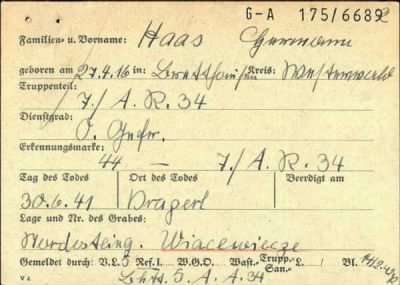 G-A 175/6689
Familien- u. Vorname: Haas Hermann
geboren am 27.4.16 in: Bretthausen Kreis: Westerwald
Truppenteil:
7./A.R.34
Dienstgrad:
O. Gefr.
Erkennungsmarke:
44 — 7./A.R.34
Tag des Todes Ort des Todes Beerdigt am
30.6.41 Dragerl
Lage und Nr. des Grabes:
Wiacewicze
Gemeldet durch: V.L. 5 Ref. I. W.G.O. Wast.- Trupp.- San.- L. Bl.
5. A.A.34
V 4